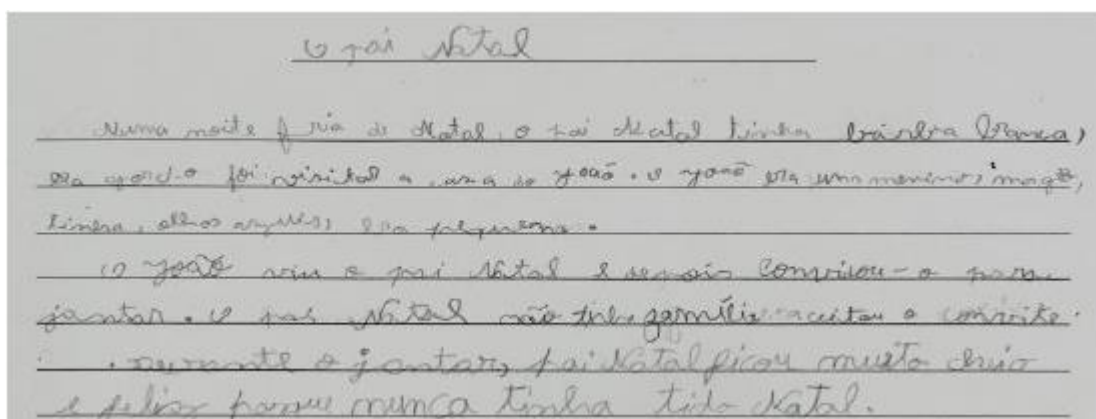 O pai Natal
Numa noite fria de Natal, o pai Natal tinha bárbra branca,
era gordo foi visital a casa do João. O João era um menino, magro,
tinha, olhos azules, era pequeno.
O João viu o pai Natal e depois convidou-o para
jantar. O pai Natal não tinha família aceitou o convite.
Durante o jantar, pai Natal ficou muito cheio
e feliz porque nunca tinha tido Natal.